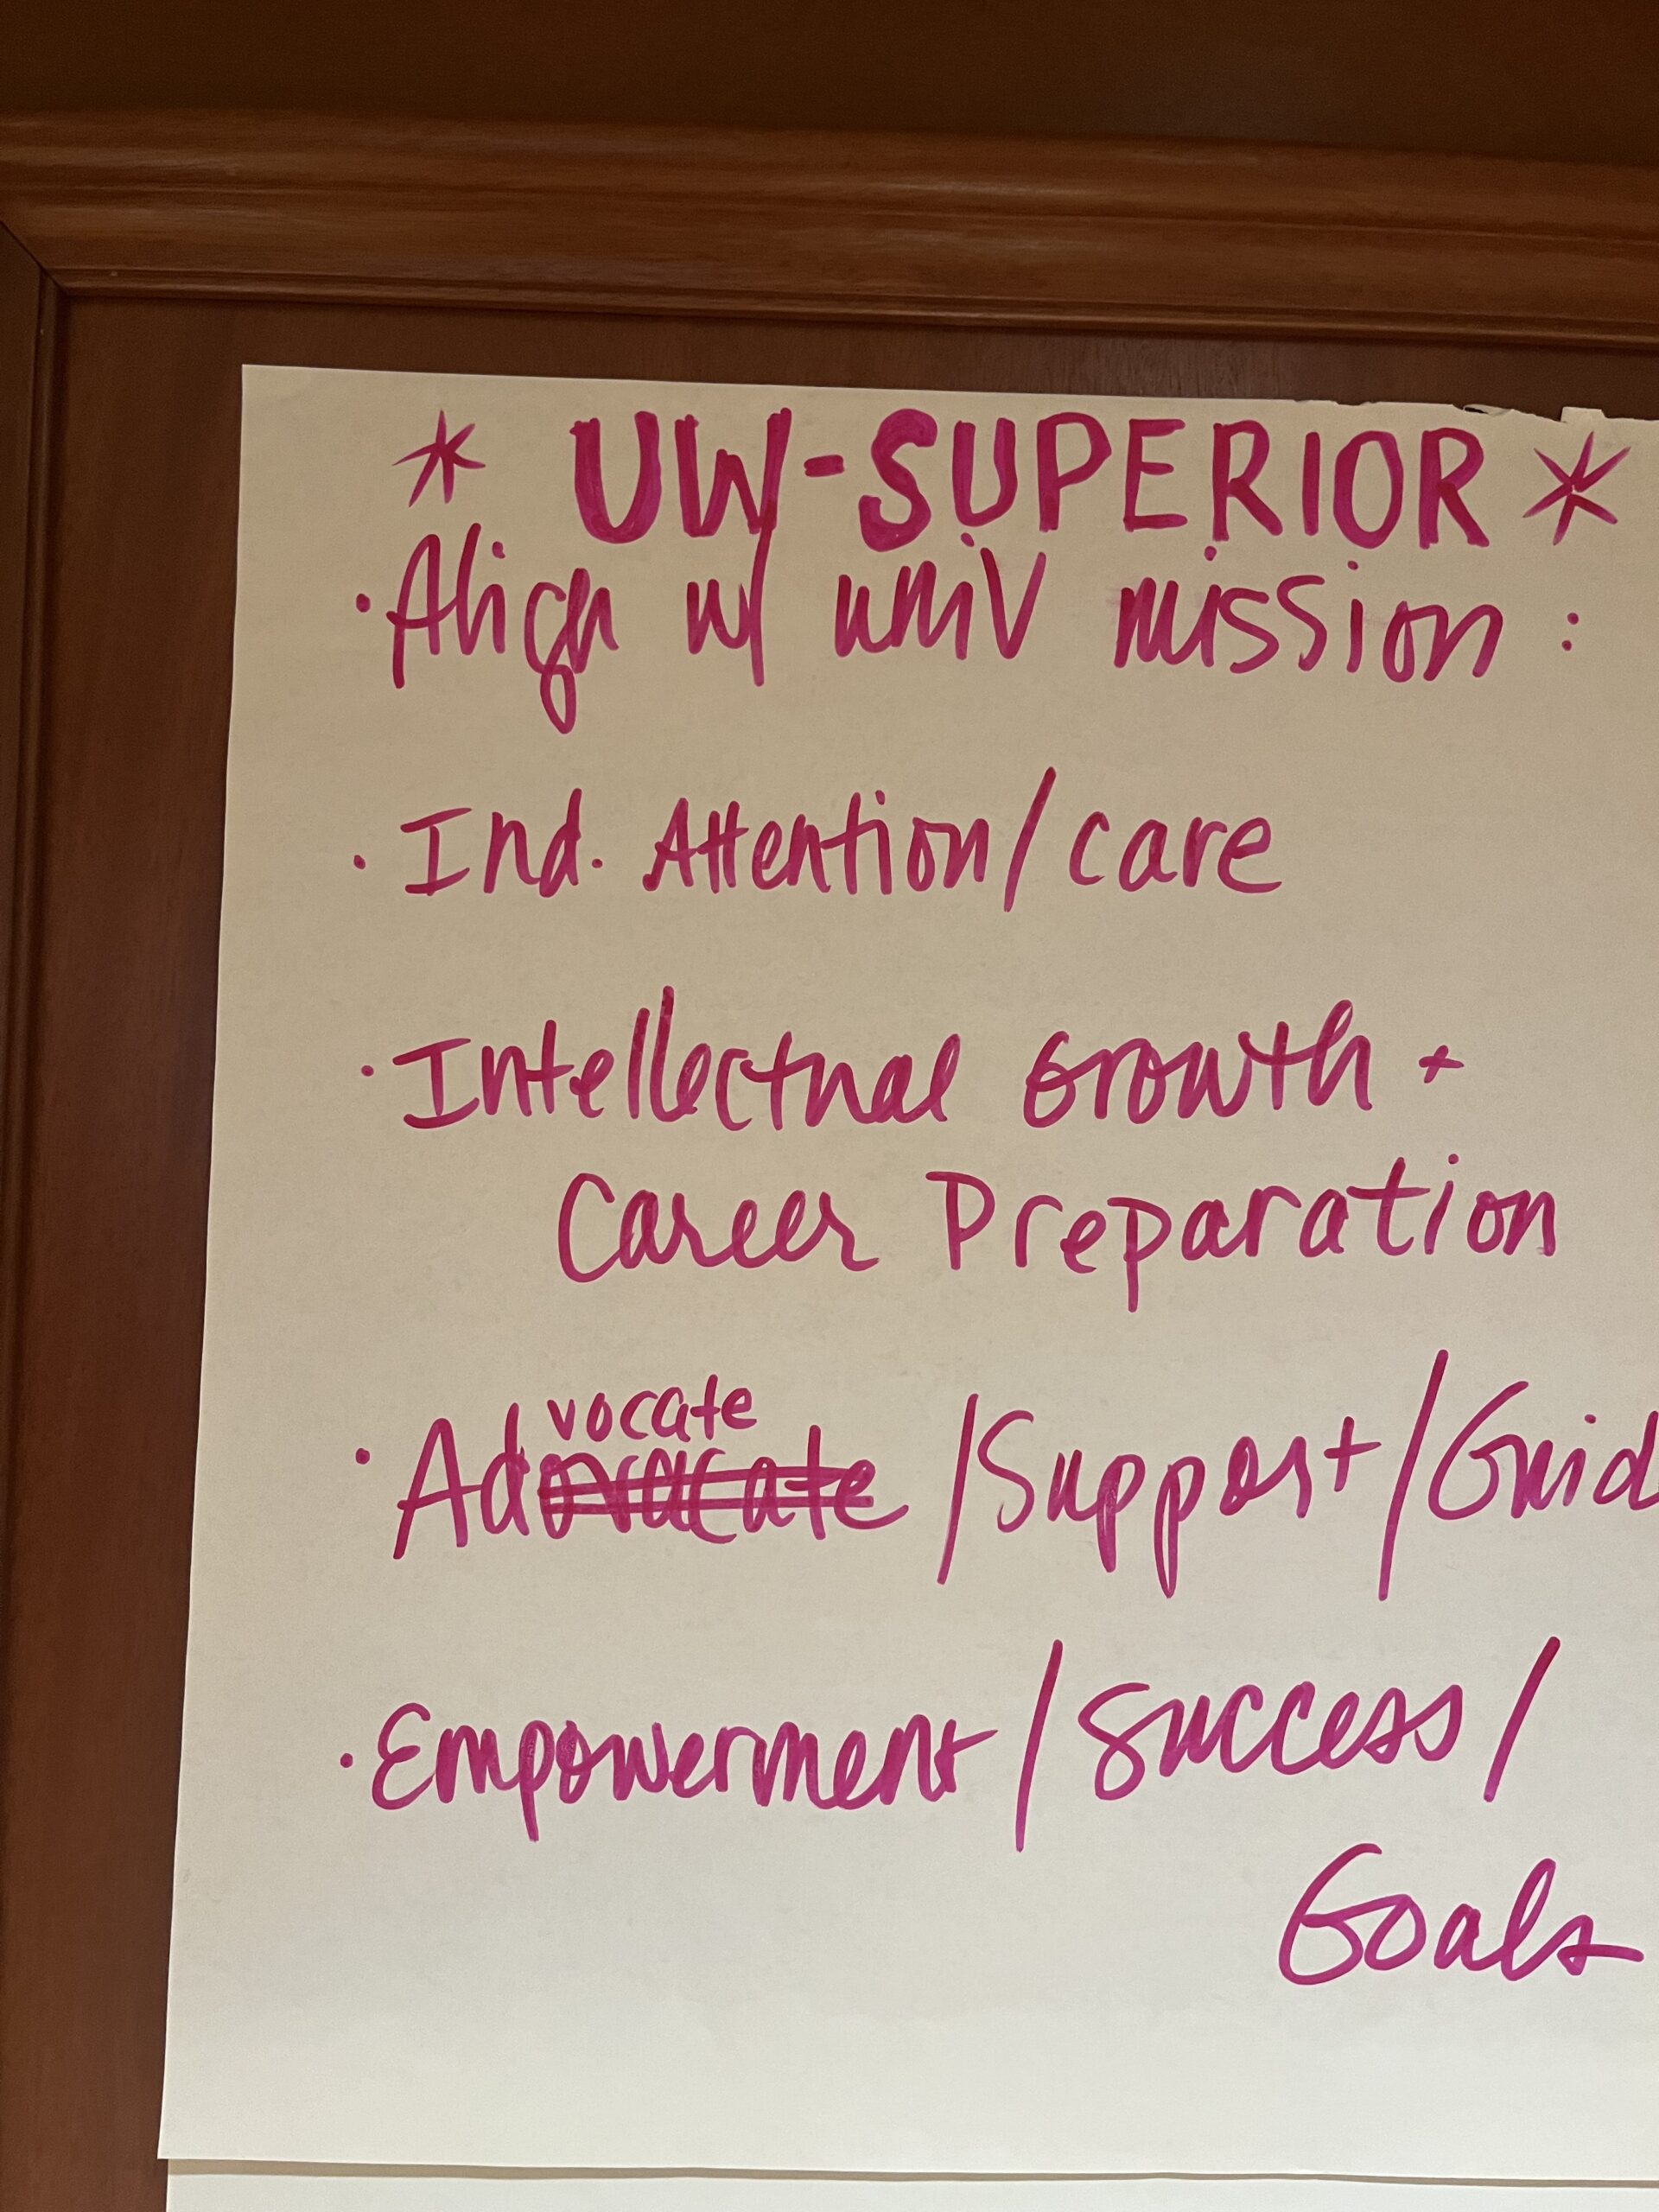 * UW-SUPERIOR *
· Align w/ univ mission :
· Ind. Attention/care
· Intellectual Growth +
Career Preparation
vocate
· Ad /Support/Guid
· Empowerment/Success/
Goals